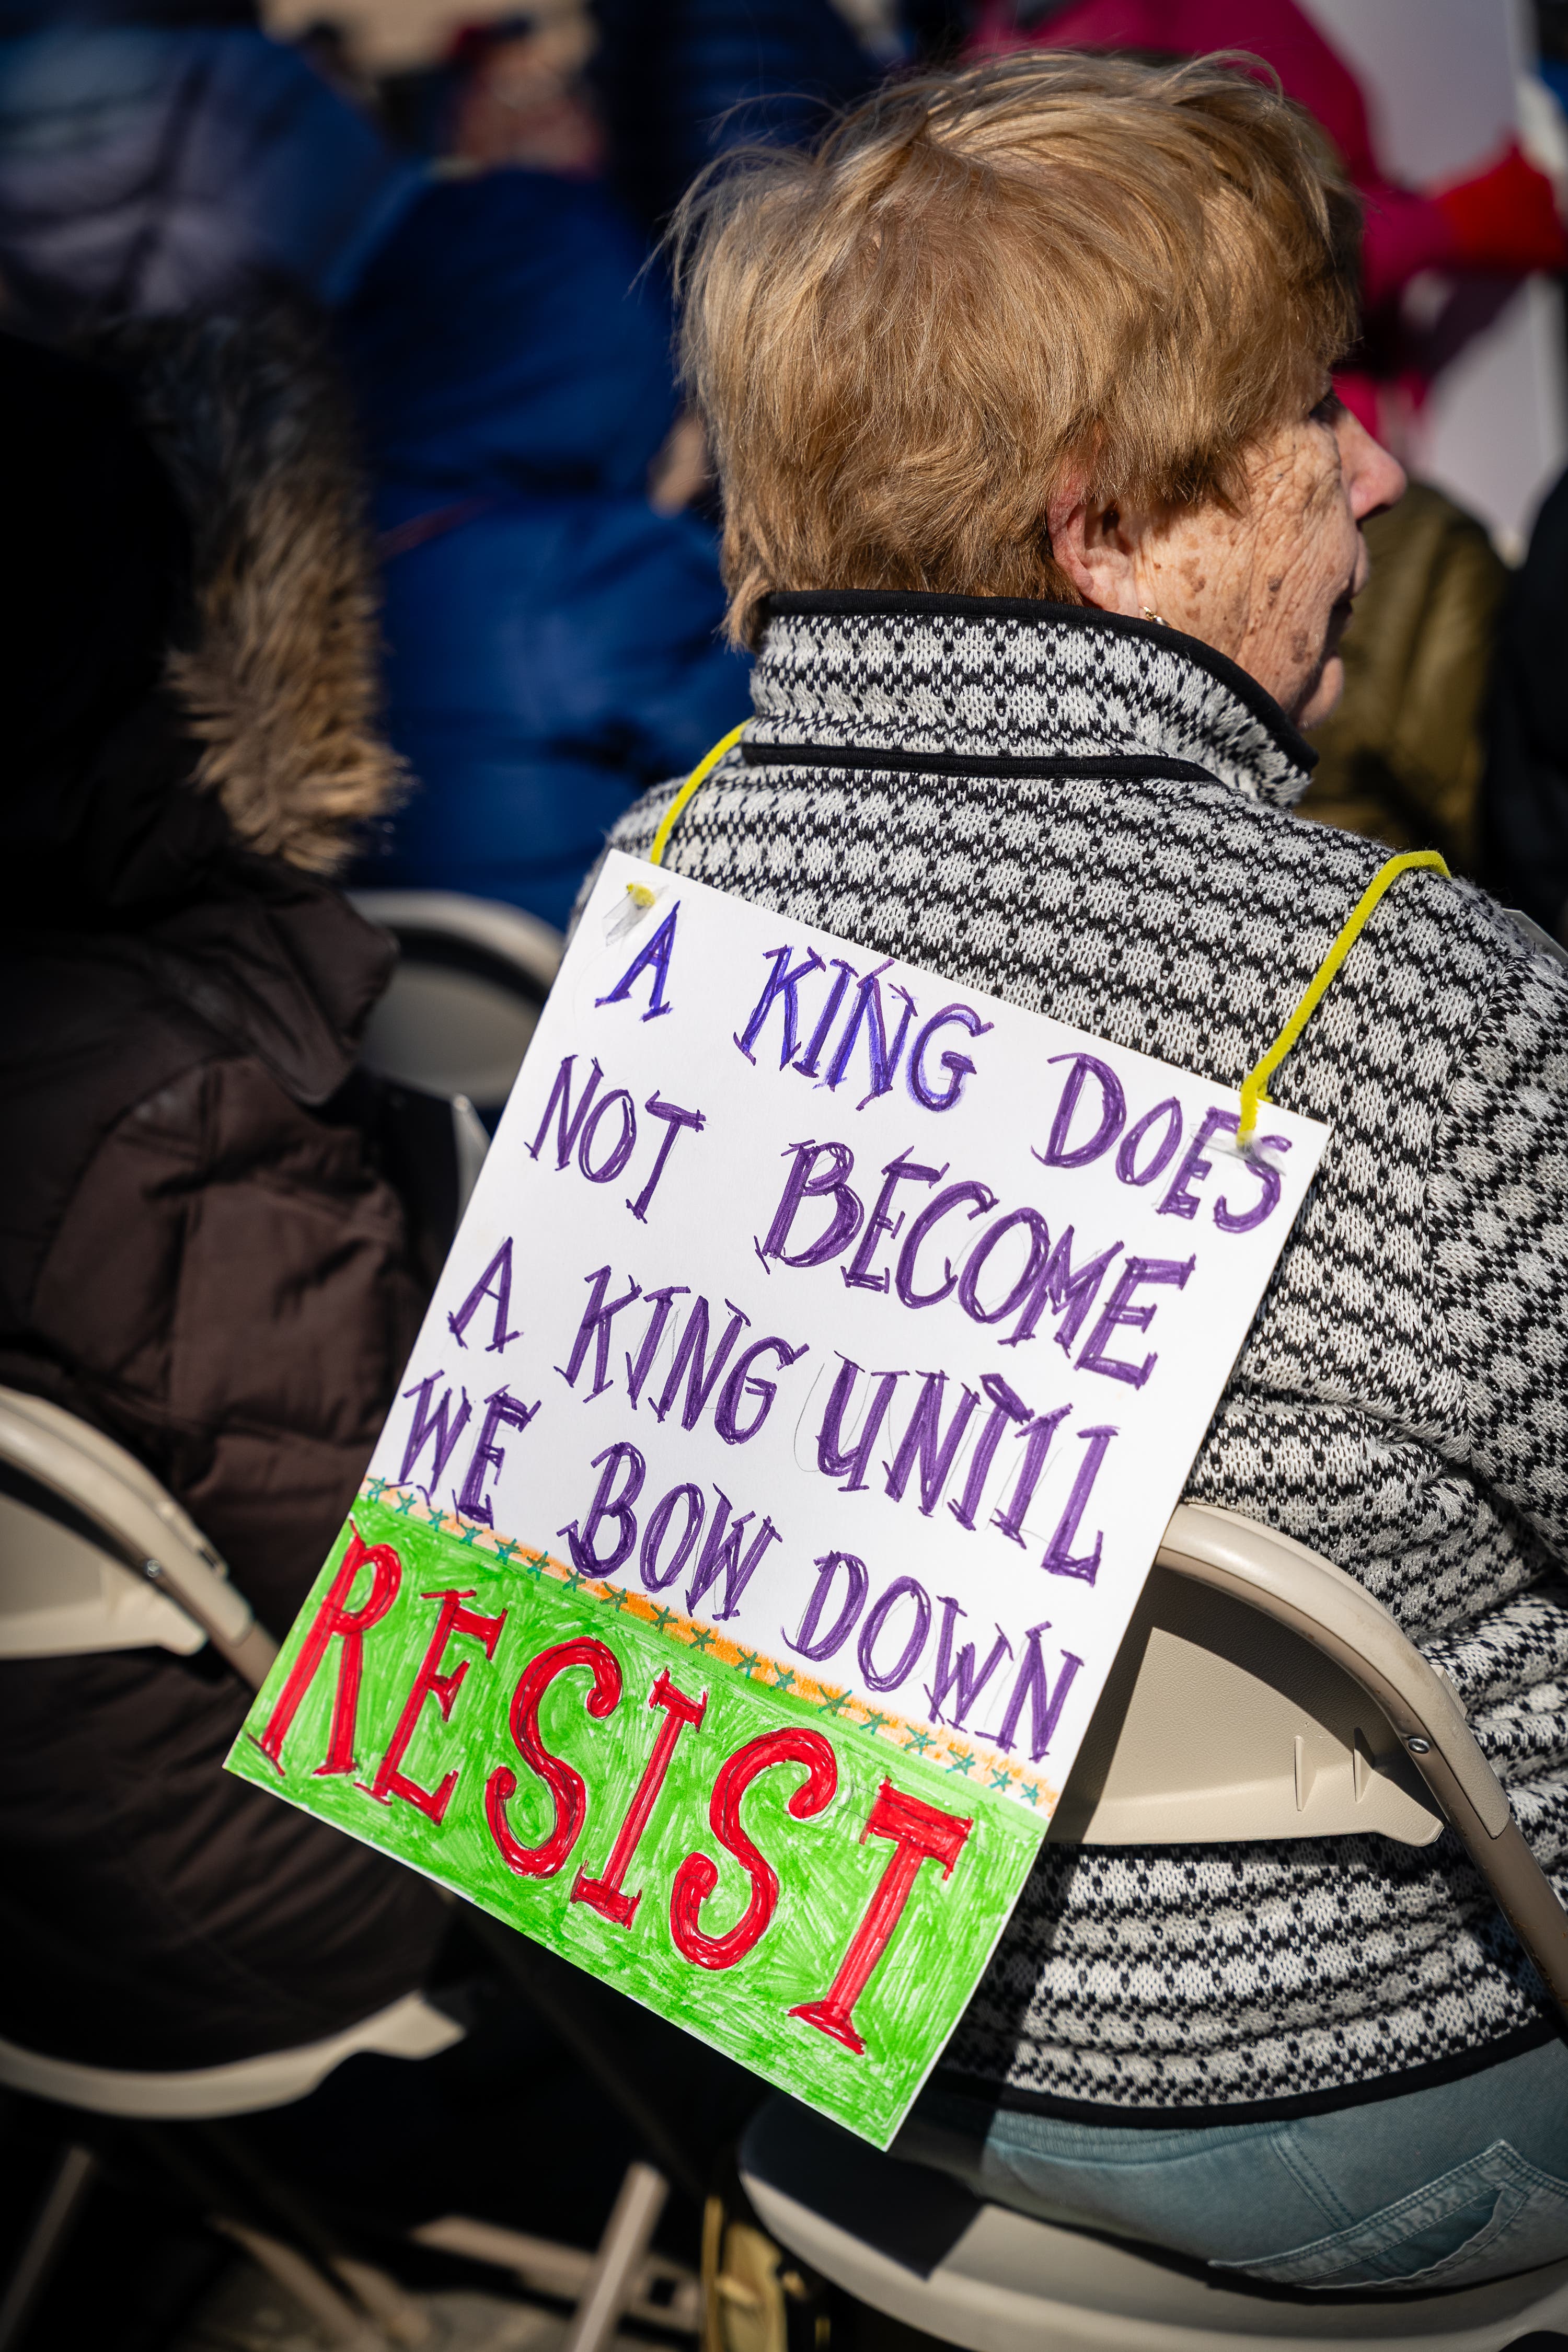 A KING DOES
NOT BECOME
A KING UNTIL
WE BOW DOWN
RESIST